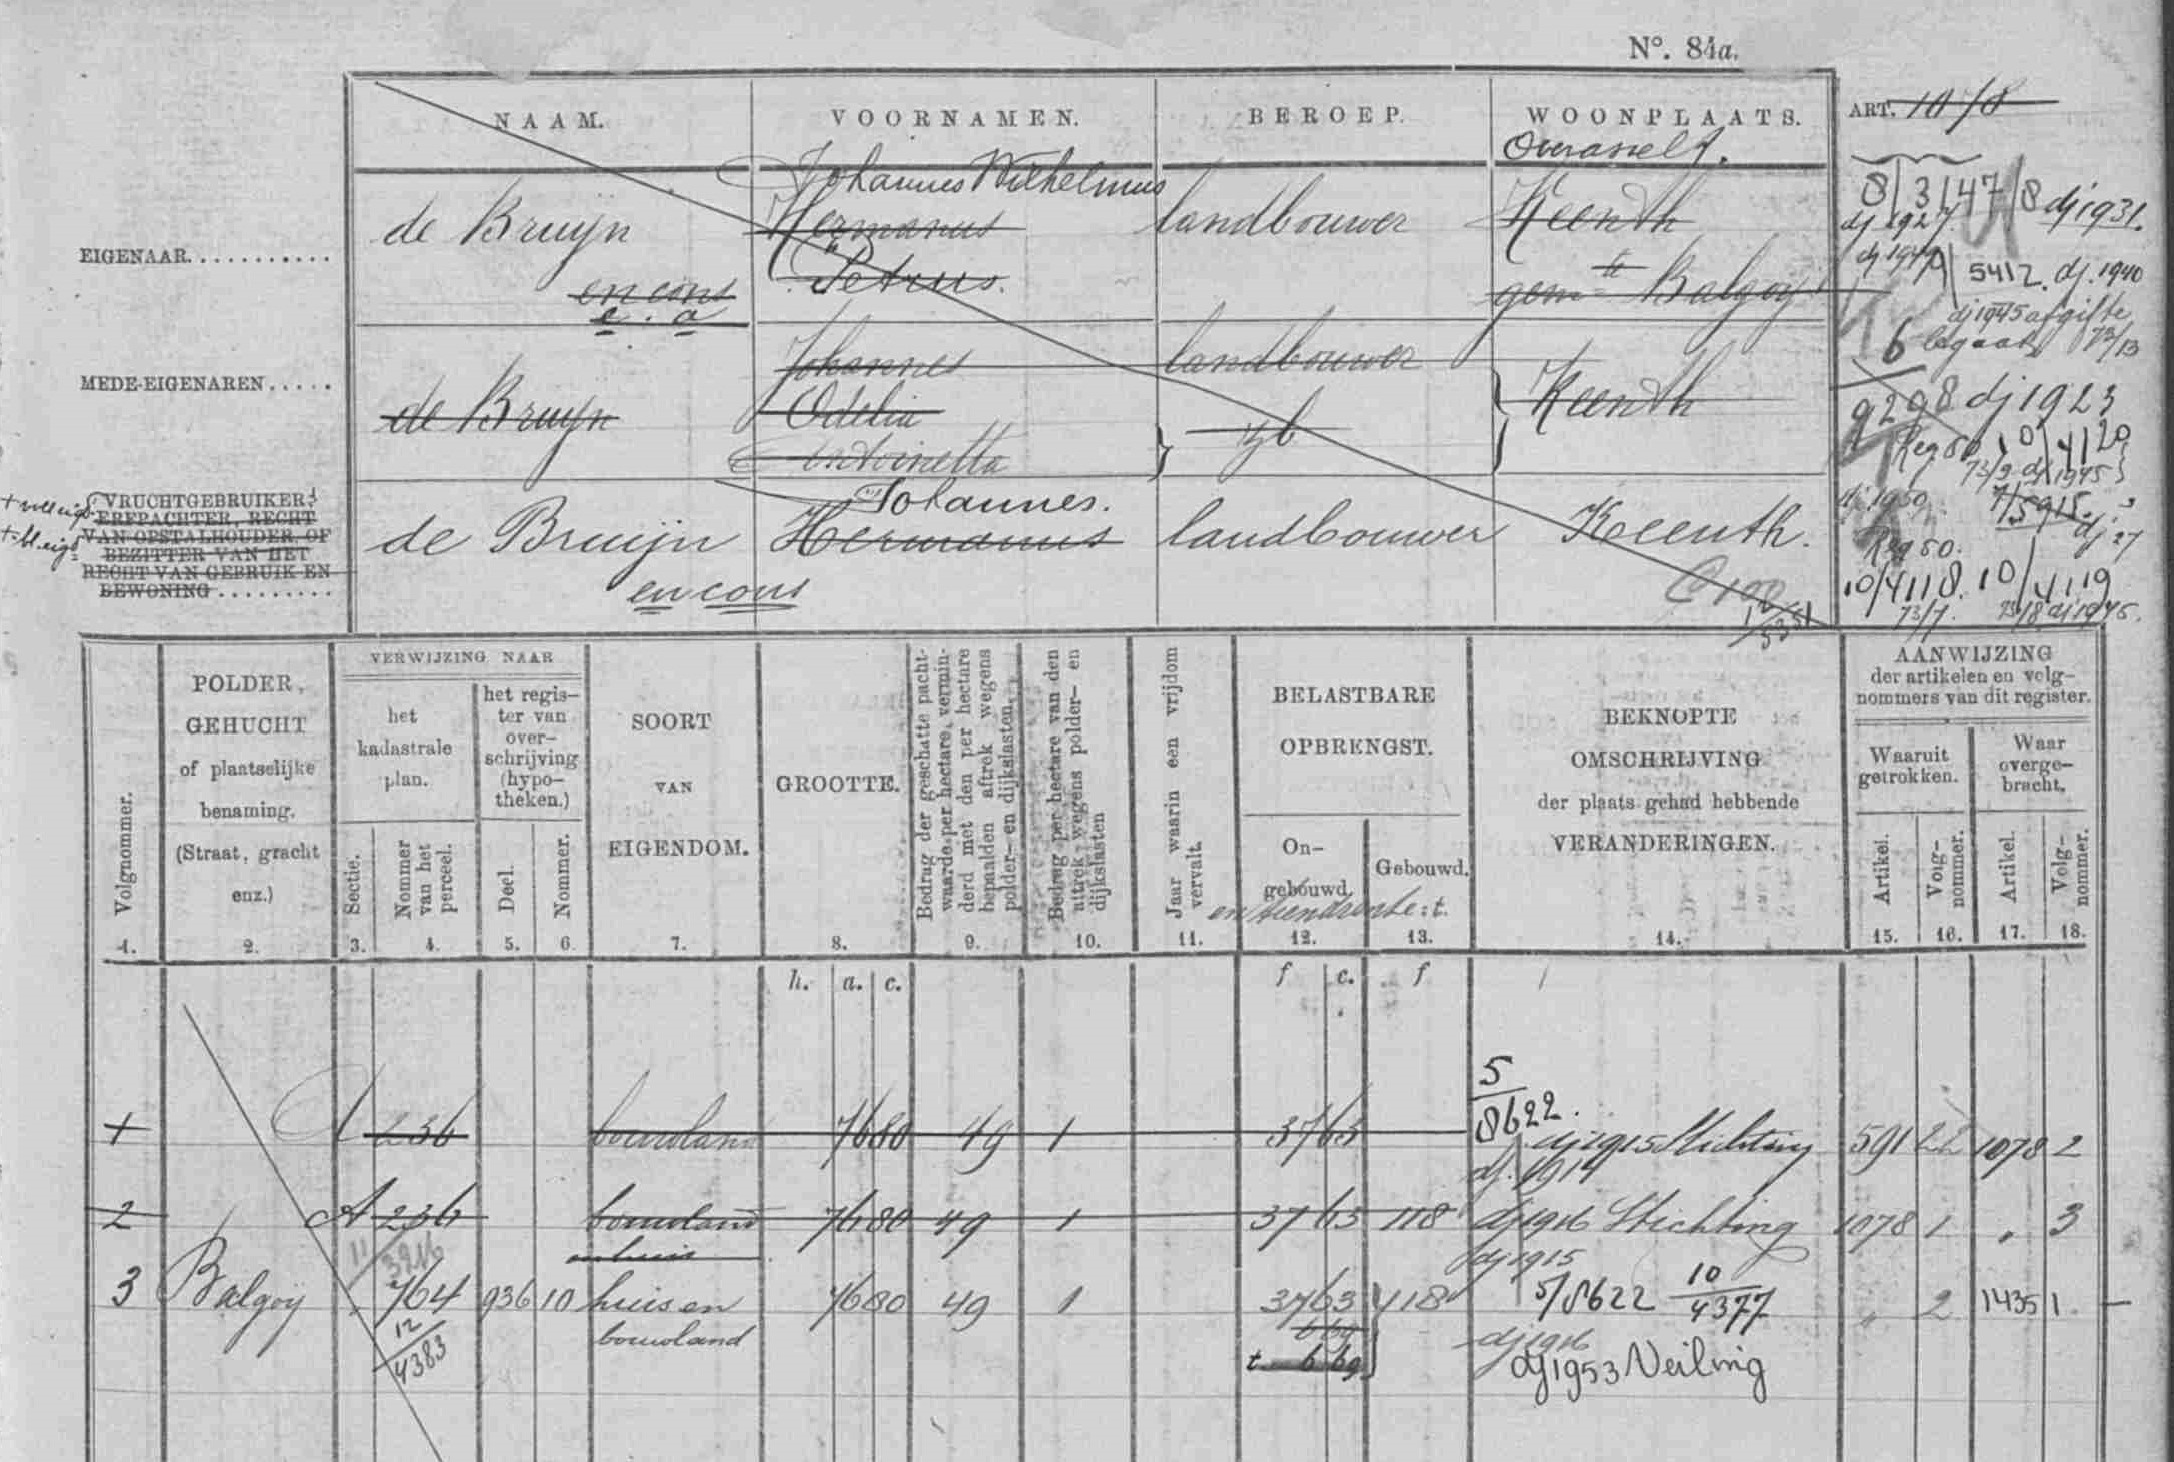 N°. 84a.
NAAM. VOORNAMEN. BEROEP. WOONPLAATS. ART. 1078
Overasselt.
Johannes Wilhelmus
EIGENAAR........... de Bruijn Hermanus landbouwer Keenth
Petrus. gem te Balgoy
en cons
e. a
8/3147/8 dj 1931.
dj 1927.
5412. dj. 1940
dj 1945 afgifte
6 legaat 73/13
MEDE-EIGENAREN..... de Bruijn Johannes landbouwer Keenth
Odelia zb
Antoinetta
9298 dj 1923
Reg 50 10/4120
73/9 dj 1945
dj 1950. 7/5915.
dj 27
Reg 50.
10/4118. 10/4119
73/7. 73/8 dj 1945.
VRUCHTGEBRUIKER,
ERFPACHTER, RECHT
VAN OPSTALHOUDER, OF
BEZITTER VAN HET
RECHT VAN GEBRUIK EN
BEWONING.........
Johannes.
de Bruijn Hermanus landbouwer Keenth.
en cons
Volgnommer.
1.
POLDER,
GEHUCHT
of plaatselijke
benaming.
(Straat, gracht
enz.)
2.
VERWIJZING NAAR
het
kadastrale
plan.
Sectie.
3.
Nommer
van het
perceel.
4.
het regis-
ter van
over-
schrijving
(hypo-
theken.)
Deel.
5.
Nommer.
6.
SOORT
VAN
EIGENDOM.
7.
GROOTTE.
8.
Bedrag der geschatte pacht-
waarde per hectare, vermin-
derd met den per hectare
bepaalden aftrek wegens
polder- en dijkslasten.
9.
Bedrag per hectare van den
aftrek wegens polder- en
dijkslasten
10.
Jaar waarin een vrijdom
vervalt.
11.
BELASTBARE
OPBRENGST.
On-
gebouwd.
en tiendrente: t.
12.
Gebouwd.
13.
BEKNOPTE
OMSCHRIJVING
der plaats gehad hebbende
VERANDERINGEN.
14.
AANWIJZING
der artikelen en volg-
nommers van dit register.
Waaruit
getrokken.
Artikel.
15.
Volg-
nommer.
16.
Waar
overge-
bracht.
Artikel.
17.
Volg-
nommer.
18.
h. a. c. f c. f
5
8622.
1 A 236 bouwland 76 80 49 1 37 63 dj 1915 Stichting 591 22 1078 2
dj. 1914
2 A 236 bouwland 76 80 49 1 37 63 118 dj 1916 Stichting 1078 1 " 3
en huis dj 1915
11/3216
3 Balgoy 764 936 10 huis en 76 80 49 1 37 63 118 5/8622 10/4377 " 2 1435 1
bouwland
12/4383
6 69
t 6 69
dj 1916
dj 1953 Veiling